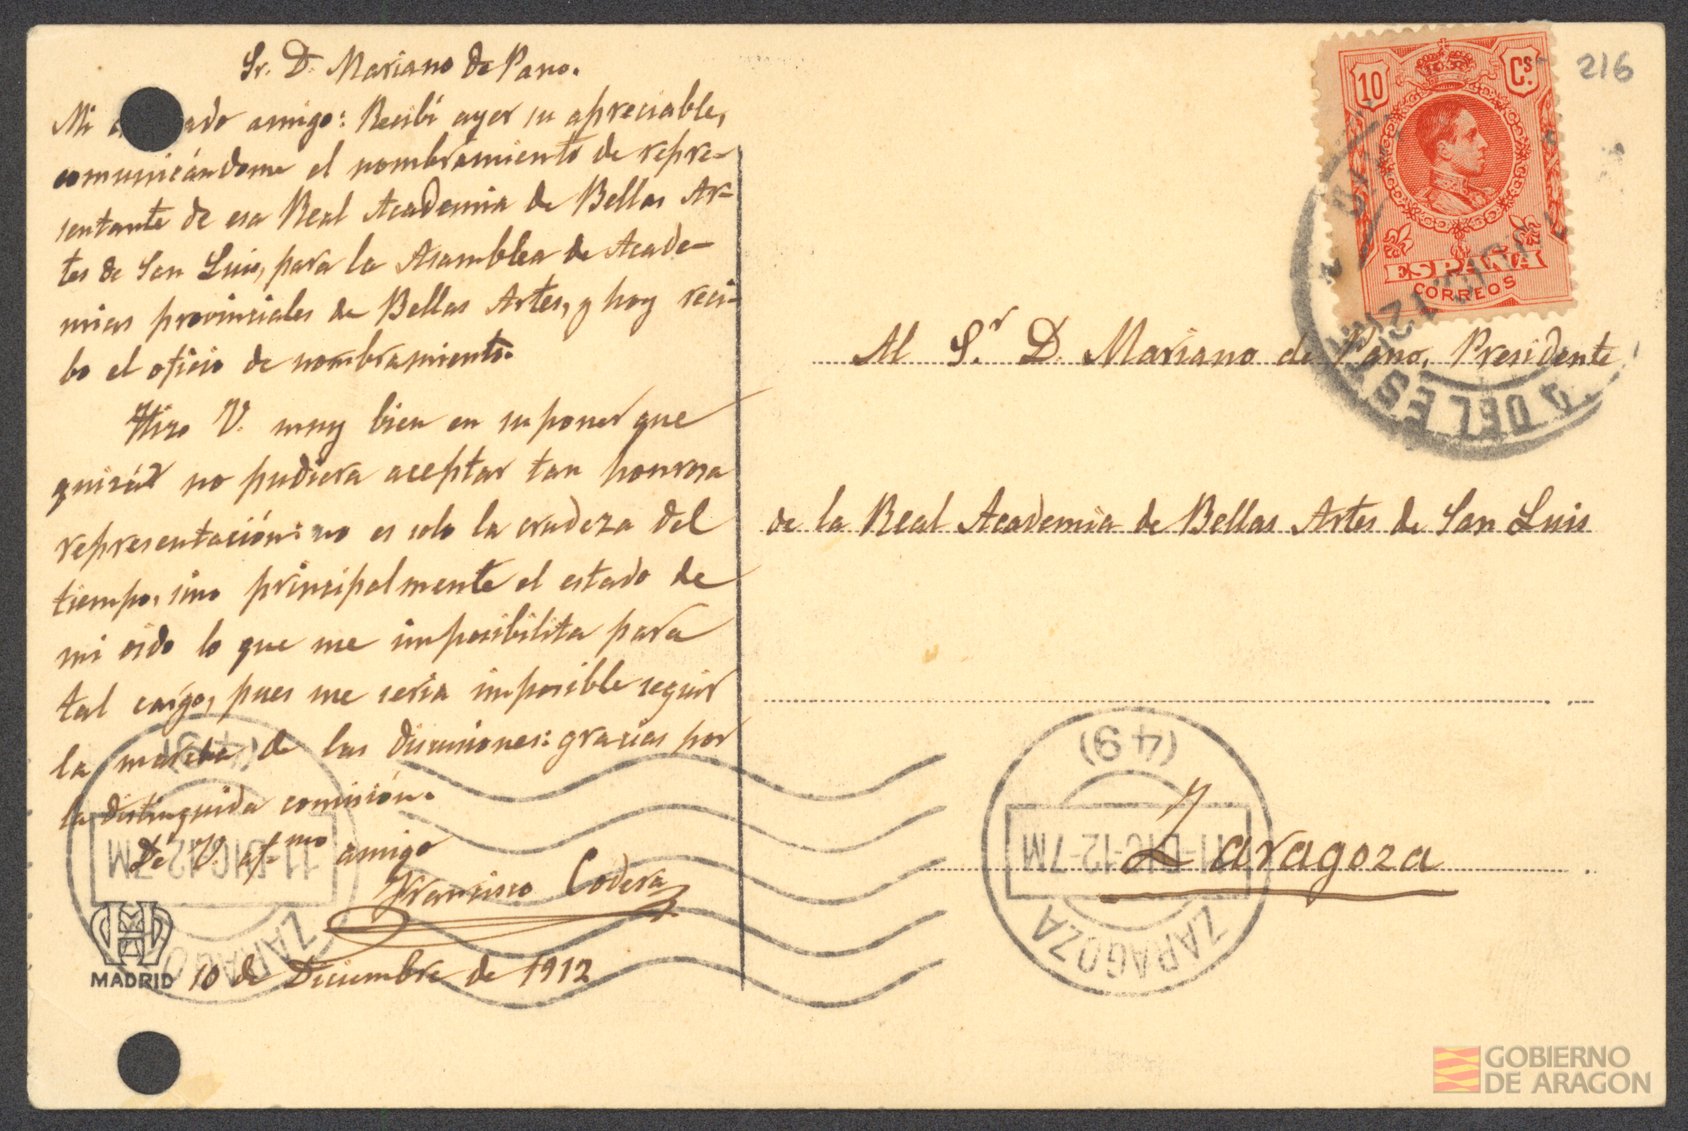 Sr. D. Mariano de Pano.
Mi ado amigo: Recibí ayer su apreciable,
comunicándome el nombramiento de repre-
sentante de esa Real Academia de Bellas Ar-
tes de San Luis, para la Asamblea de Acade-
mias provinciales de Bellas Artes, y hoy reci-
bo el oficio de nombramiento.
Hizo V. muy bien en suponer que
quizás no pudiera aceptar tan honrosa
representación: no es solo la crudeza del
tiempo, sino principalmente el estado de
mi oido lo que me imposibilita para
tal cargo, pues me seria imposible seguir
la marcha de las discusiones: gracias por
la distinguida comisión.
De V. af.mo amigo
Francisco Codera
10 de Diciembre de 1912
MADRID
216
10 Cs.
ESPAÑA
CORREOS
DEL EST
Al Sr. D. Mariano de Pano, Presidente
de la Real Academia de Bellas Artes de San Luis
Zaragoza
(49)
11-DIC-12-7M
ZARAGOZA
(49)
11-DIC-12-7M
ZARAGOZA
GOBIERNO
DE ARAGON